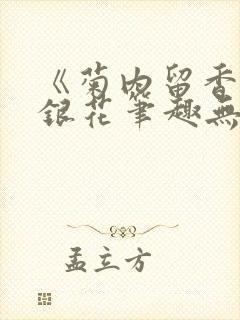 《菊内留香
銀花筆趣無
孟立方